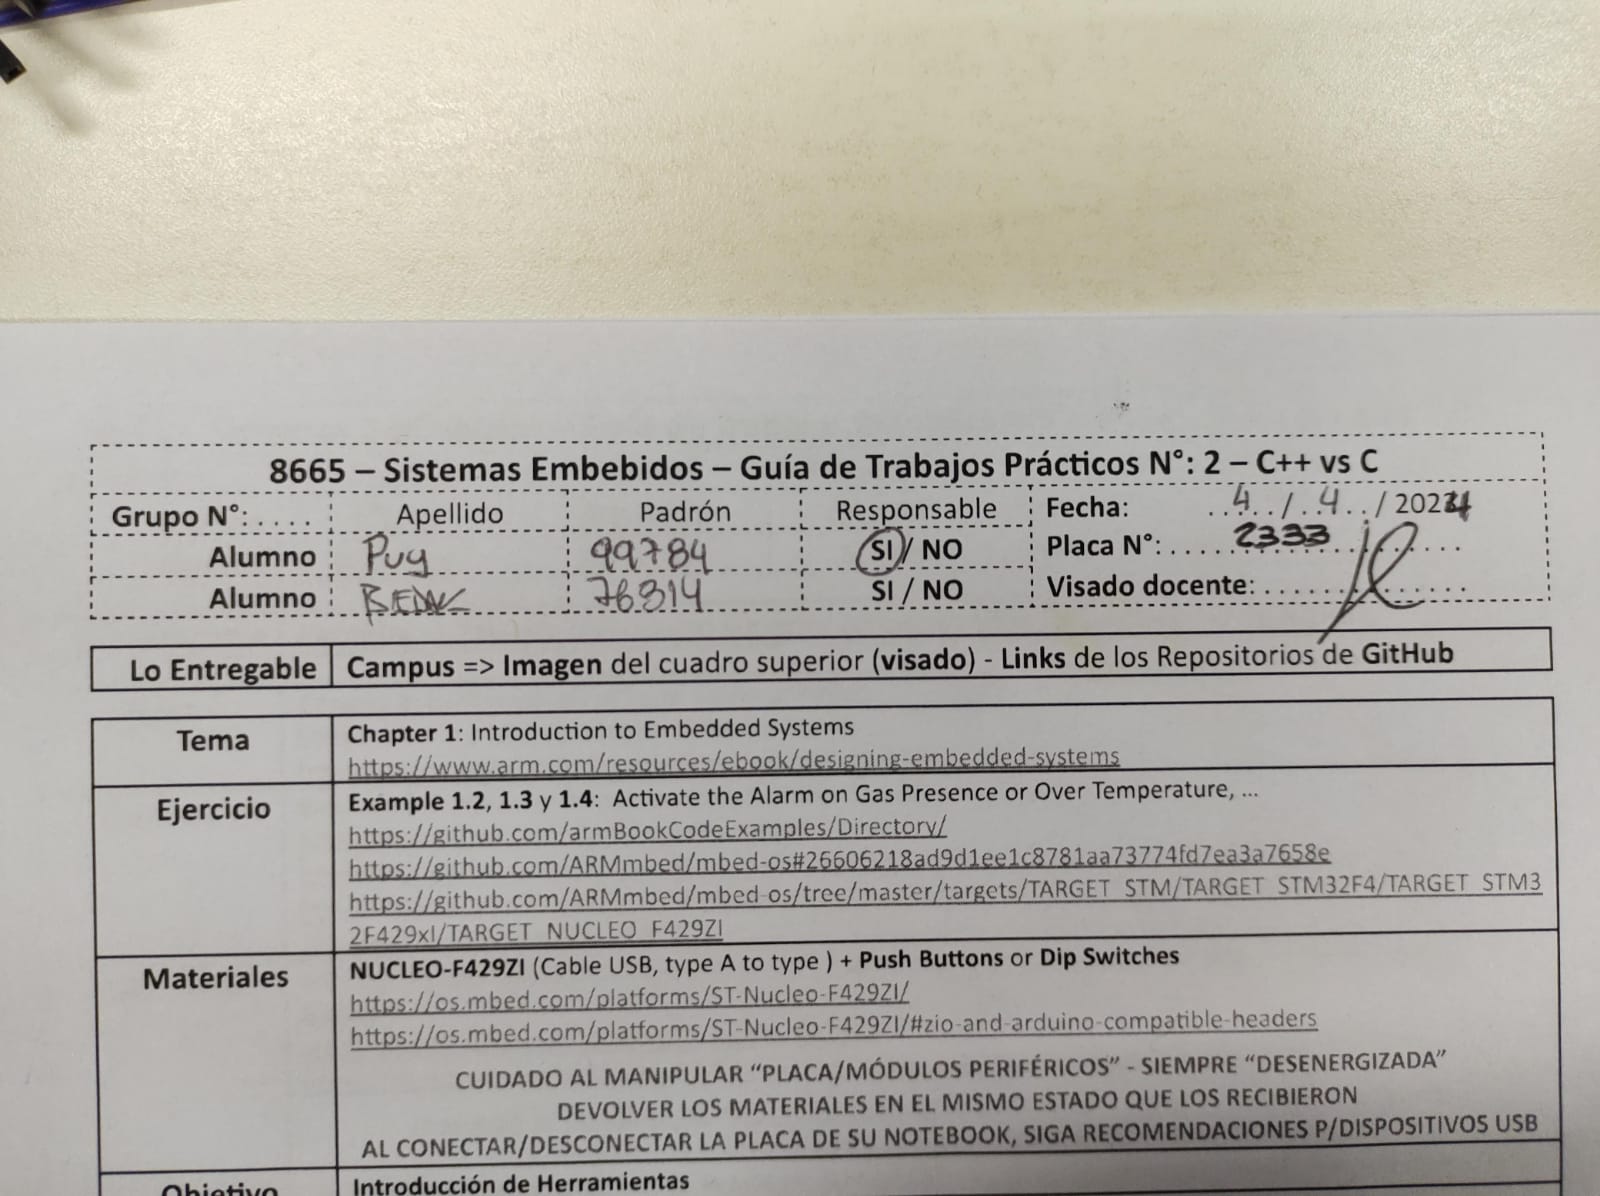 8665 – Sistemas Embebidos – Guía de Trabajos Prácticos N°: 2 – C++ vs C
Grupo N°: .... Apellido Padrón Responsable Fecha: ..4../.4../2024
Alumno Puy 99784 SI / NO Placa N°: ..... 2333 ..........
Alumno 76314 SI / NO Visado docente: ..............
Lo Entregable Campus => Imagen del cuadro superior (visado) - Links de los Repositorios de GitHub
Tema Chapter 1: Introduction to Embedded Systems
https://www.arm.com/resources/ebook/designing-embedded-systems
Ejercicio Example 1.2, 1.3 y 1.4: Activate the Alarm on Gas Presence or Over Temperature, ...
https://github.com/armBookCodeExamples/Directory/
https://github.com/ARMmbed/mbed-os#26606218ad9d1ee1c8781aa73774fd7ea3a7658e
https://github.com/ARMmbed/mbed-os/tree/master/targets/TARGET_STM/TARGET_STM32F4/TARGET_STM3
2F429xI/TARGET_NUCLEO_F429ZI
Materiales NUCLEO-F429ZI (Cable USB, type A to type ) + Push Buttons or Dip Switches
https://os.mbed.com/platforms/ST-Nucleo-F429ZI/
https://os.mbed.com/platforms/ST-Nucleo-F429ZI/#zio-and-arduino-compatible-headers
CUIDADO AL MANIPULAR “PLACA/MÓDULOS PERIFÉRICOS” - SIEMPRE “DESENERGIZADA”
DEVOLVER LOS MATERIALES EN EL MISMO ESTADO QUE LOS RECIBIERON
AL CONECTAR/DESCONECTAR LA PLACA DE SU NOTEBOOK, SIGA RECOMENDACIONES P/DISPOSITIVOS USB
Objetivo Introducción de Herramientas